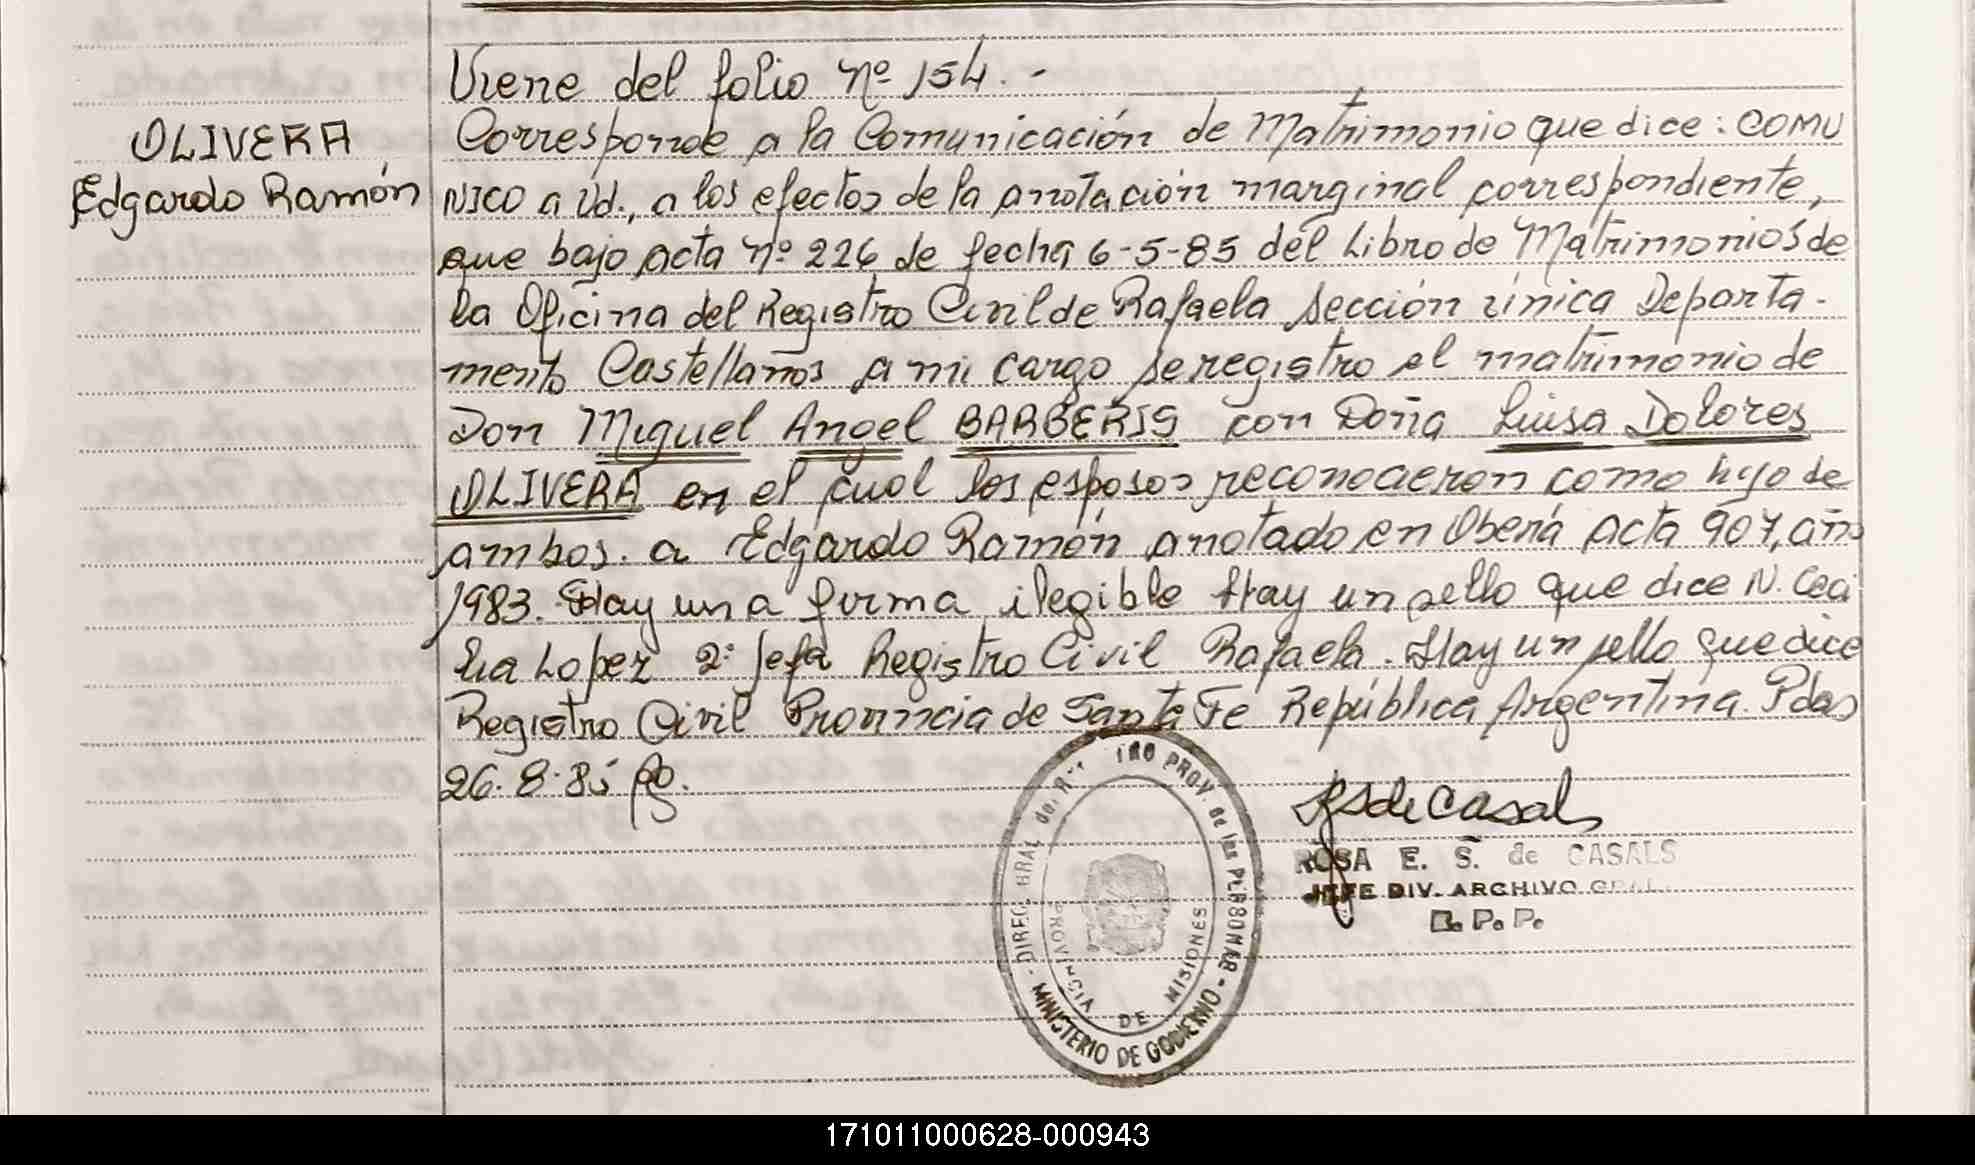 Viene del folio nº 154.-
OLIVERA,
Edgardo Ramón
Corresponde a la Comunicación de Matrimonio que dice: COMU
NICO a Ud., a los efectos de la anotación marginal correspondiente,
que bajo acta nº 226 de fecha 6-5-85 del Libro de Matrimonios de
la Oficina del Registro Civil de Rafaela sección única Departa-
mento Castellanos a mi cargo se registro el matrimonio de
Don Miguel Angel BARBERIS con Doña Luisa Dolores
OLIVERA en el cual los esposos reconocieron como hijo de
ambos. a Edgardo Ramón anotado en Oberá acta 907, año
1983. Hay una firma ilegible Hay un sello que dice N. Ceci
lia Lopez 2º Jefa Registro Civil Rafaela. Hay un sello que dice
Registro Civil Provincia de Santa Fe República Argentina. Pdas
26.8.85
ROSA E. S. de CASALS
JEFE DIV. ARCHIVO GRAL.
R. P. P.
DIREC. GRAL. del PROV. de las PERSONAS
PROVINCIA DE MISIONES
MINISTERIO DE GOBIERNO
171011000628-000943